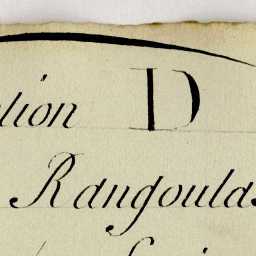 tion D
Rangoulas